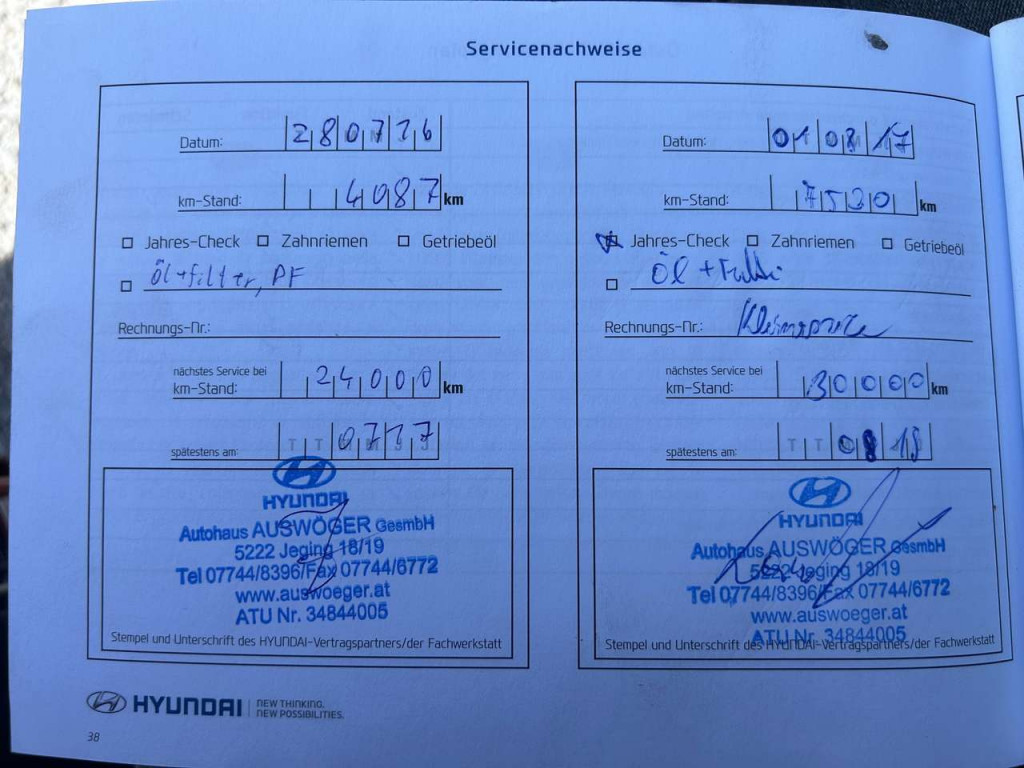 Servicenachweise
Datum: 280716
km-Stand: 4087 km
Jahres-Check Zahnriemen Getriebeöl
Öl+filter, PF
Rechnungs-Nr.:
nächstes Service bei
km-Stand: 24000 km
spätestens am: TT 0717
HYUNDAI
Autohaus AUSWÖGER GesmbH
5222 Jeging 18/19
Tel 07744/8396/Fax 07744/6772
www.auswoeger.at
ATU Nr. 34844005
Stempel und Unterschrift des HYUNDAI-Vertragspartners/der Fachwerkstatt
Datum: 010817
km-Stand: 7530 km
Jahres-Check Zahnriemen Getriebeöl
Öl +
Rechnungs-Nr.:
nächstes Service bei
km-Stand: 30000 km
spätestens am: TT 0818
HYUNDAI
Autohaus AUSWÖGER GesmbH
5222 Jeging 18/19
Tel 07744/8396/Fax 07744/6772
www.auswoeger.at
ATU Nr. 34844005
Stempel und Unterschrift des HYUNDAI-Vertragspartners/der Fachwerkstatt
HYUNDAI NEW THINKING.
NEW POSSIBILITIES.
38